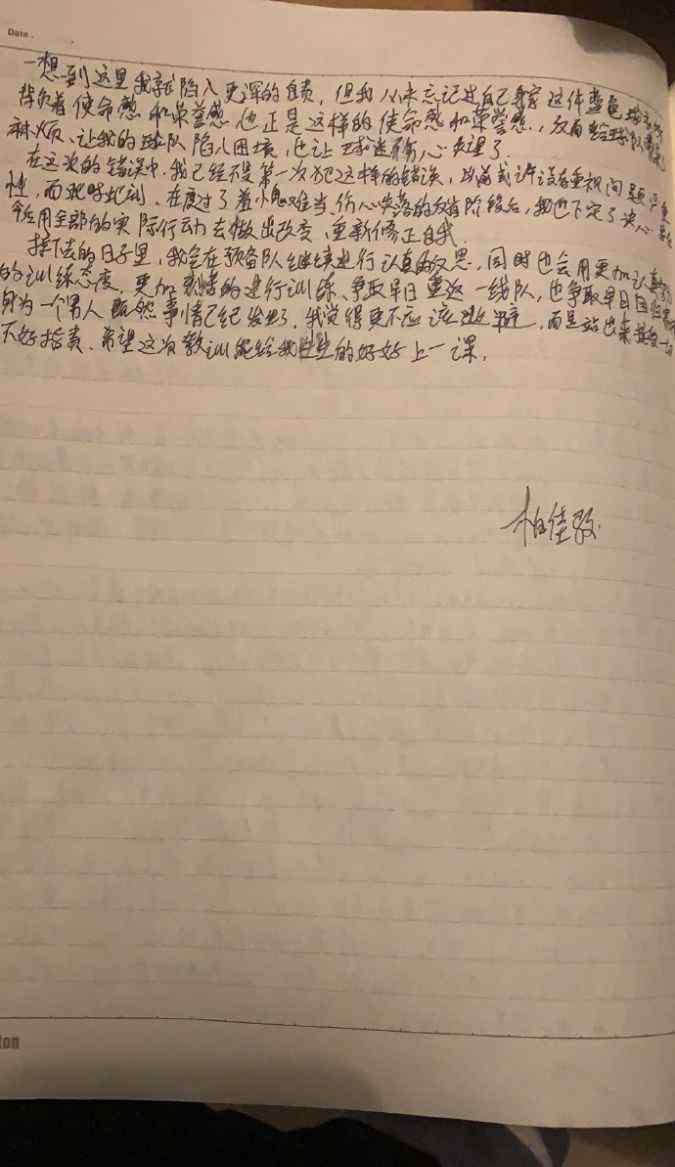 Date.
一想到这里我就陷入更深的自责，但我从未忘记过自己身穿这件蓝色球衣所
背负着使命感和荣誉感也正是这样的使命感和荣誉感，反而给球队
麻烦、让我的球队陷入困境，也让球迷伤心失望了。
在这次的错误中，我已经不是第一次犯这样的错误，以前或许没有重视问题严重
性，而此时此刻，在度过了羞愧难当、伤心失落的反省阶段后，我也下定了决心
今后用全部的实际行动去做出改变，重新修正自我。
接下去的日子里，我会在预备队继续进行认真的反思，同时也会用更加认真
的训练态度，更加的进行训练、争取早日重返一线队，也争取早日回归
身为一个男人既然事情已经发生了，我觉得更不应该逃避，而是站出来接受一切
不好指责、希望这次教训能给我生生的好好上一课。
柏佳骏
ton